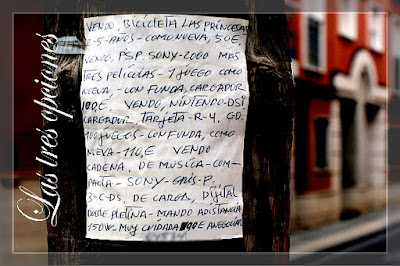 Las tres opciones
VENDO, BICICLETA LAS PRINCESAS
2-5-AÑOS-COMO NUEVA, 50E,
VENDO, PSP SONY-2000 MAS
TRES PELICULAS-1 JUEGO COMO
NUEVA,-CON FUNDA, CARGADOR
100,E, VENDO, NINTENDO-DSI
CARGADOR, TARJETA-R-4, GD,
100 JUEGOS-CON FUNDA, COMO
NUEVA-110,E VENDO
CADENA, DE MUSICA-COM-
PACTA-SONY-GRIS-P,
3-C-DS, DE CARGA, DIJITAL
DOBLE PLETINA-MANDO ADISTANCIA
150W. MUY CUIDADA E ANEGOCIAR